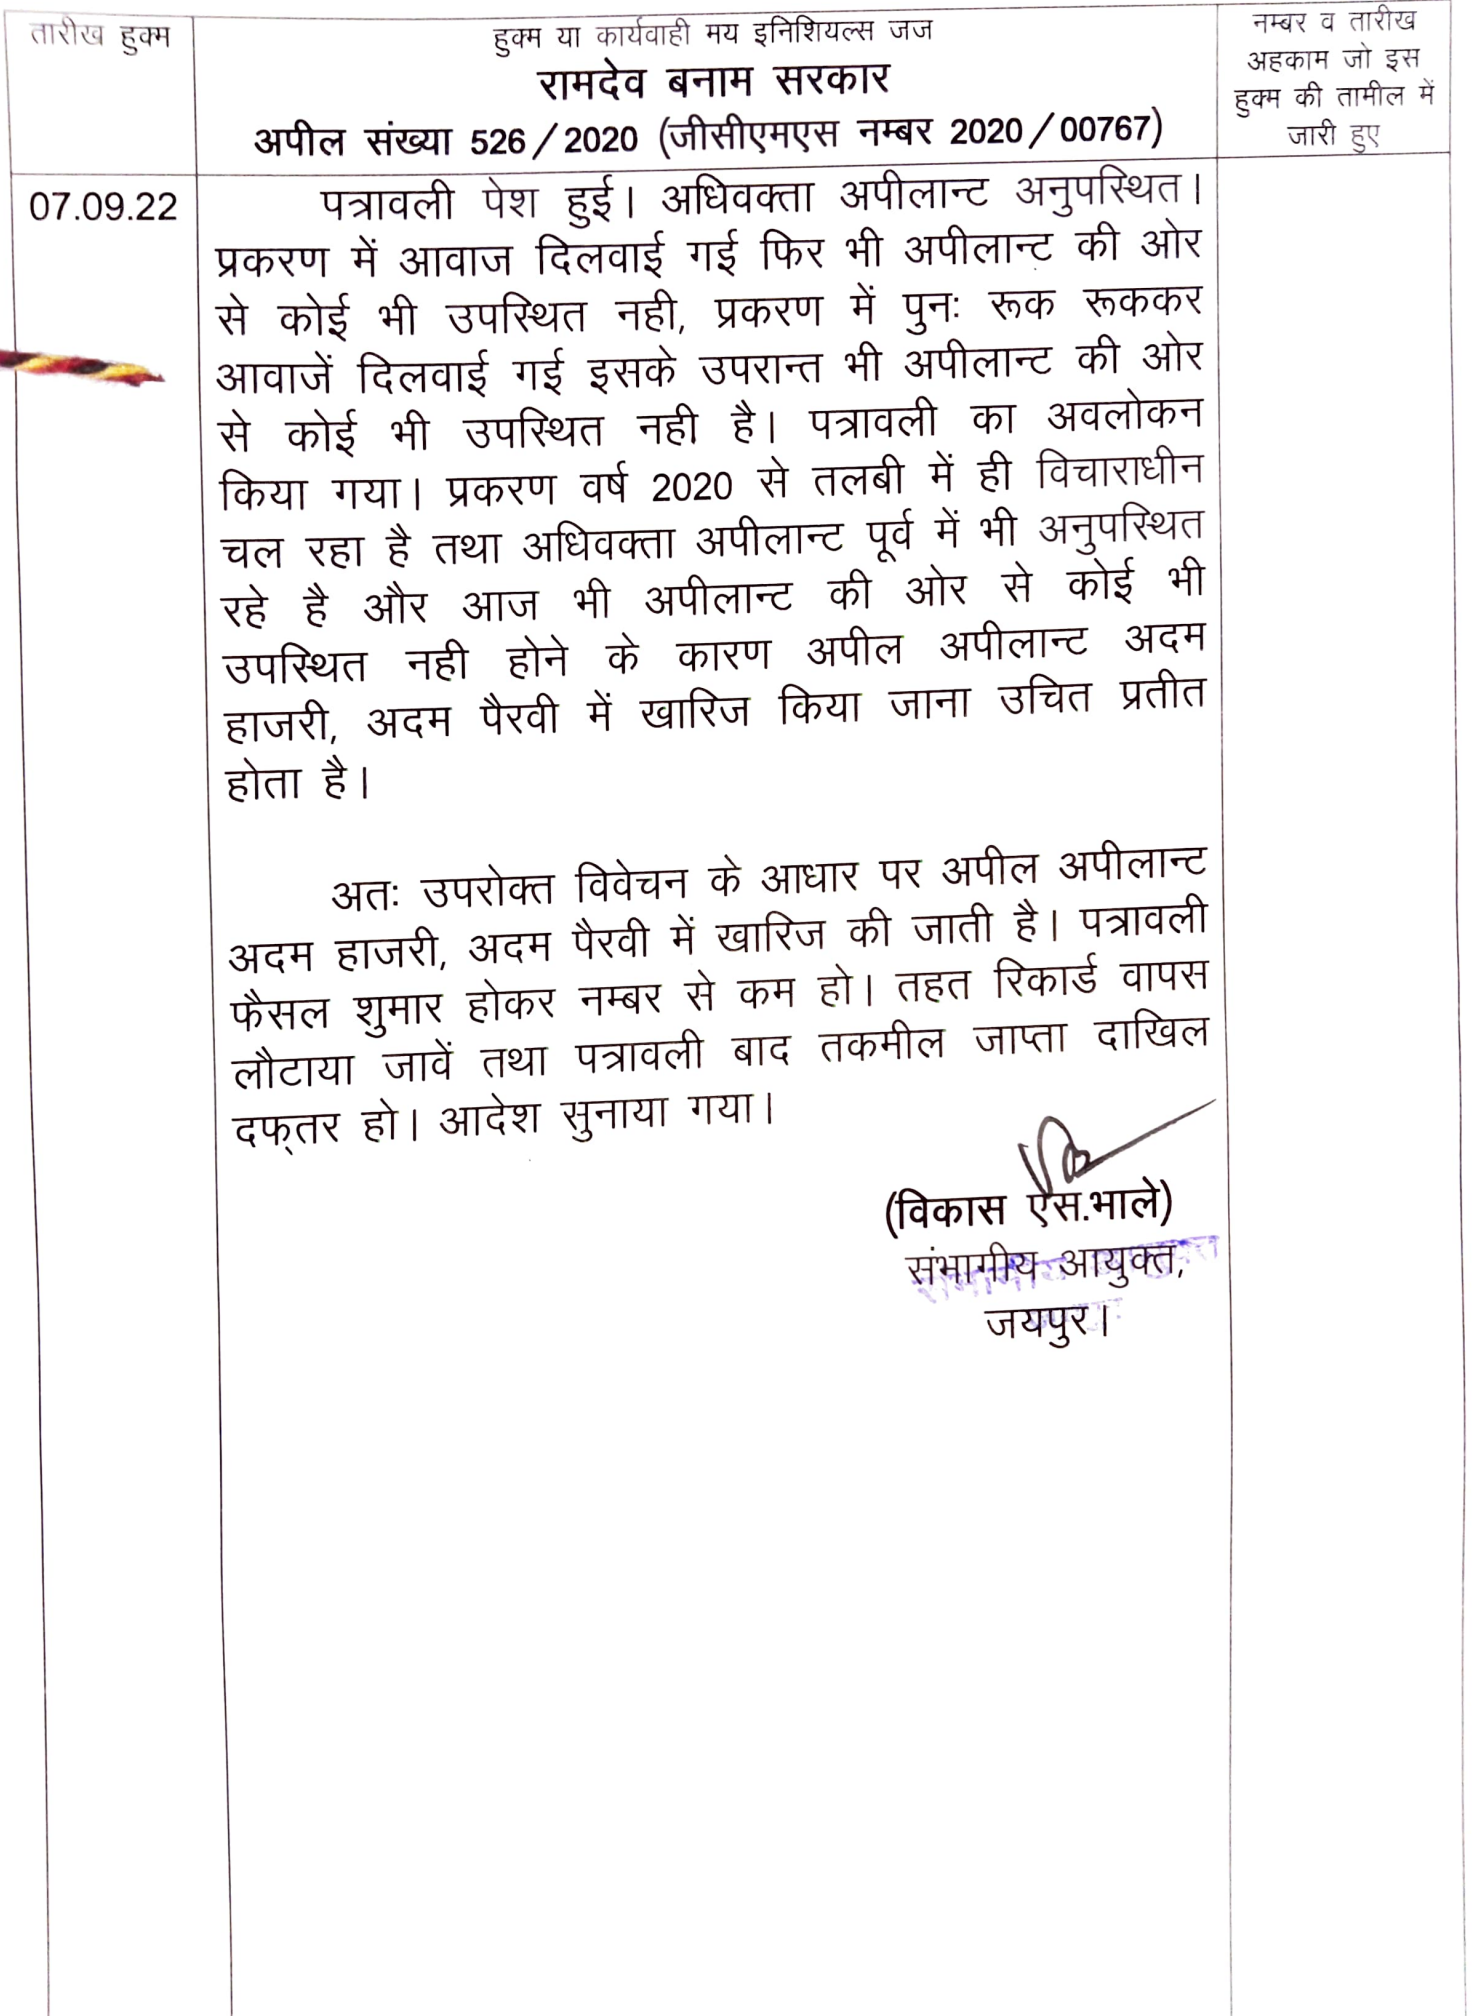 तारीख हुक्म
हुक्म या कार्यवाही मय इनिशियल्स जज
रामदेव बनाम सरकार
अपील संख्या 526/2020 (जीसीएमएस नम्बर 2020/00767)
नम्बर व तारीख
अहकाम जो इस
हुक्म की तामील में
जारी हुए
07.09.22
पत्रावली पेश हुई। अधिवक्ता अपीलान्ट अनुपस्थित।
प्रकरण में आवाज दिलवाई गई फिर भी अपीलान्ट की ओर
से कोई भी उपस्थित नही, प्रकरण में पुनः रूक रूककर
आवाजें दिलवाई गई इसके उपरान्त भी अपीलान्ट की ओर
से कोई भी उपस्थित नही है। पत्रावली का अवलोकन
किया गया। प्रकरण वर्ष 2020 से तलबी में ही विचाराधीन
चल रहा है तथा अधिवक्ता अपीलान्ट पूर्व में भी अनुपस्थित
रहे है और आज भी अपीलान्ट की ओर से कोई भी
उपस्थित नही होने के कारण अपील अपीलान्ट अदम
हाजरी, अदम पैरवी में खारिज किया जाना उचित प्रतीत
होता है।
अतः उपरोक्त विवेचन के आधार पर अपील अपीलान्ट
अदम हाजरी, अदम पैरवी में खारिज की जाती है। पत्रावली
फैसल शुमार होकर नम्बर से कम हो। तहत रिकार्ड वापस
लौटाया जावें तथा पत्रावली बाद तकमील जाप्ता दाखिल
दफ्तर हो। आदेश सुनाया गया।
(विकास एस.भाले)
संभागीय आयुक्त,
जयपुर।